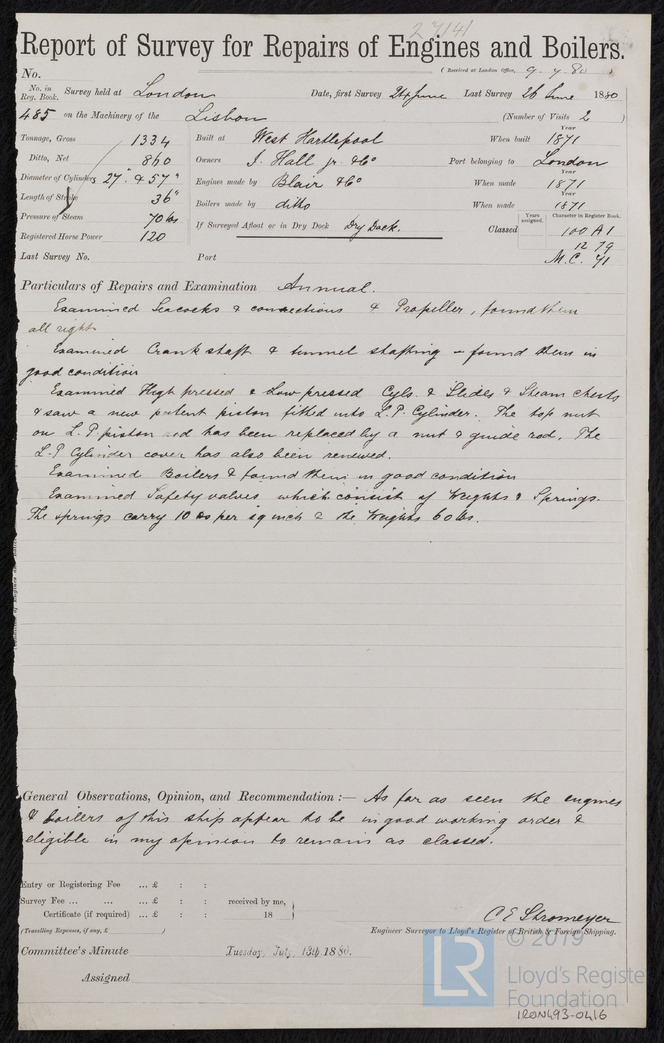 27141
Report of Survey for Repairs of Engines and Boilers.
No. (Received at London Office, 9. 7. 80 )
No. in Reg. Book. Survey held at London Date, first Survey 24 June Last Survey 26 June 1880
485 on the Machinery of the Lisbon (Number of Visits 2 )
Tonnage, Gross 1334 Built at West Hartlepool When built Year 1871
Ditto, Net 860 Owners J. Hall jr. & Co Port belonging to London
Diameter of Cylinders 27" & 57" Engines made by Blair & Co When made Year 1871
Length of Stroke 36" Boilers made by ditto When made Year 1871
Pressure of Steam 70 lbs If Surveyed Afloat or in Dry Dock Dry Dock. Classed Years assigned. Character in Register Book. 100 A 1
Registered Horse Power 120 12 79
Last Survey No. Port M.C. 71
Particulars of Repairs and Examination Annual.
Examined Seacocks & connections & Propeller, found them
all right
Examined Crank shaft & tunnel shafting – found them in
good condition
Examined High pressed & Low pressed Cyls. & Slides & Steam chests
& saw a new patent piston fitted into L.P. Cylinder. The top nut
on L.P piston rod has been replaced by a nut & guide rod. The
L.P Cylinder cover has also been renewed.
Examined Boilers & found them in good condition
Examined Safety valves which consist of Weights & Springs.
The springs carry 10 lbs per sq inch & the Weights 60 lbs.
General Observations, Opinion, and Recommendation :— As far as seen the engines
& boilers of this ship appear to be in good working order &
eligible in my opinion to remain as classed.
Entry or Registering Fee ... £ : :
Survey Fee ... ... ... £ : : received by me,
Certificate (if required) ... £ : : 18
(Travelling Expenses, if any, £ ) C E Stromeyer
Engineer Surveyor to Lloyd's Register of British & Foreign Shipping.
Committee's Minute Tuesday, July, 13th 1880.
Assigned
LR © 2019
Lloyd's Register
Foundation
IRON493-0416